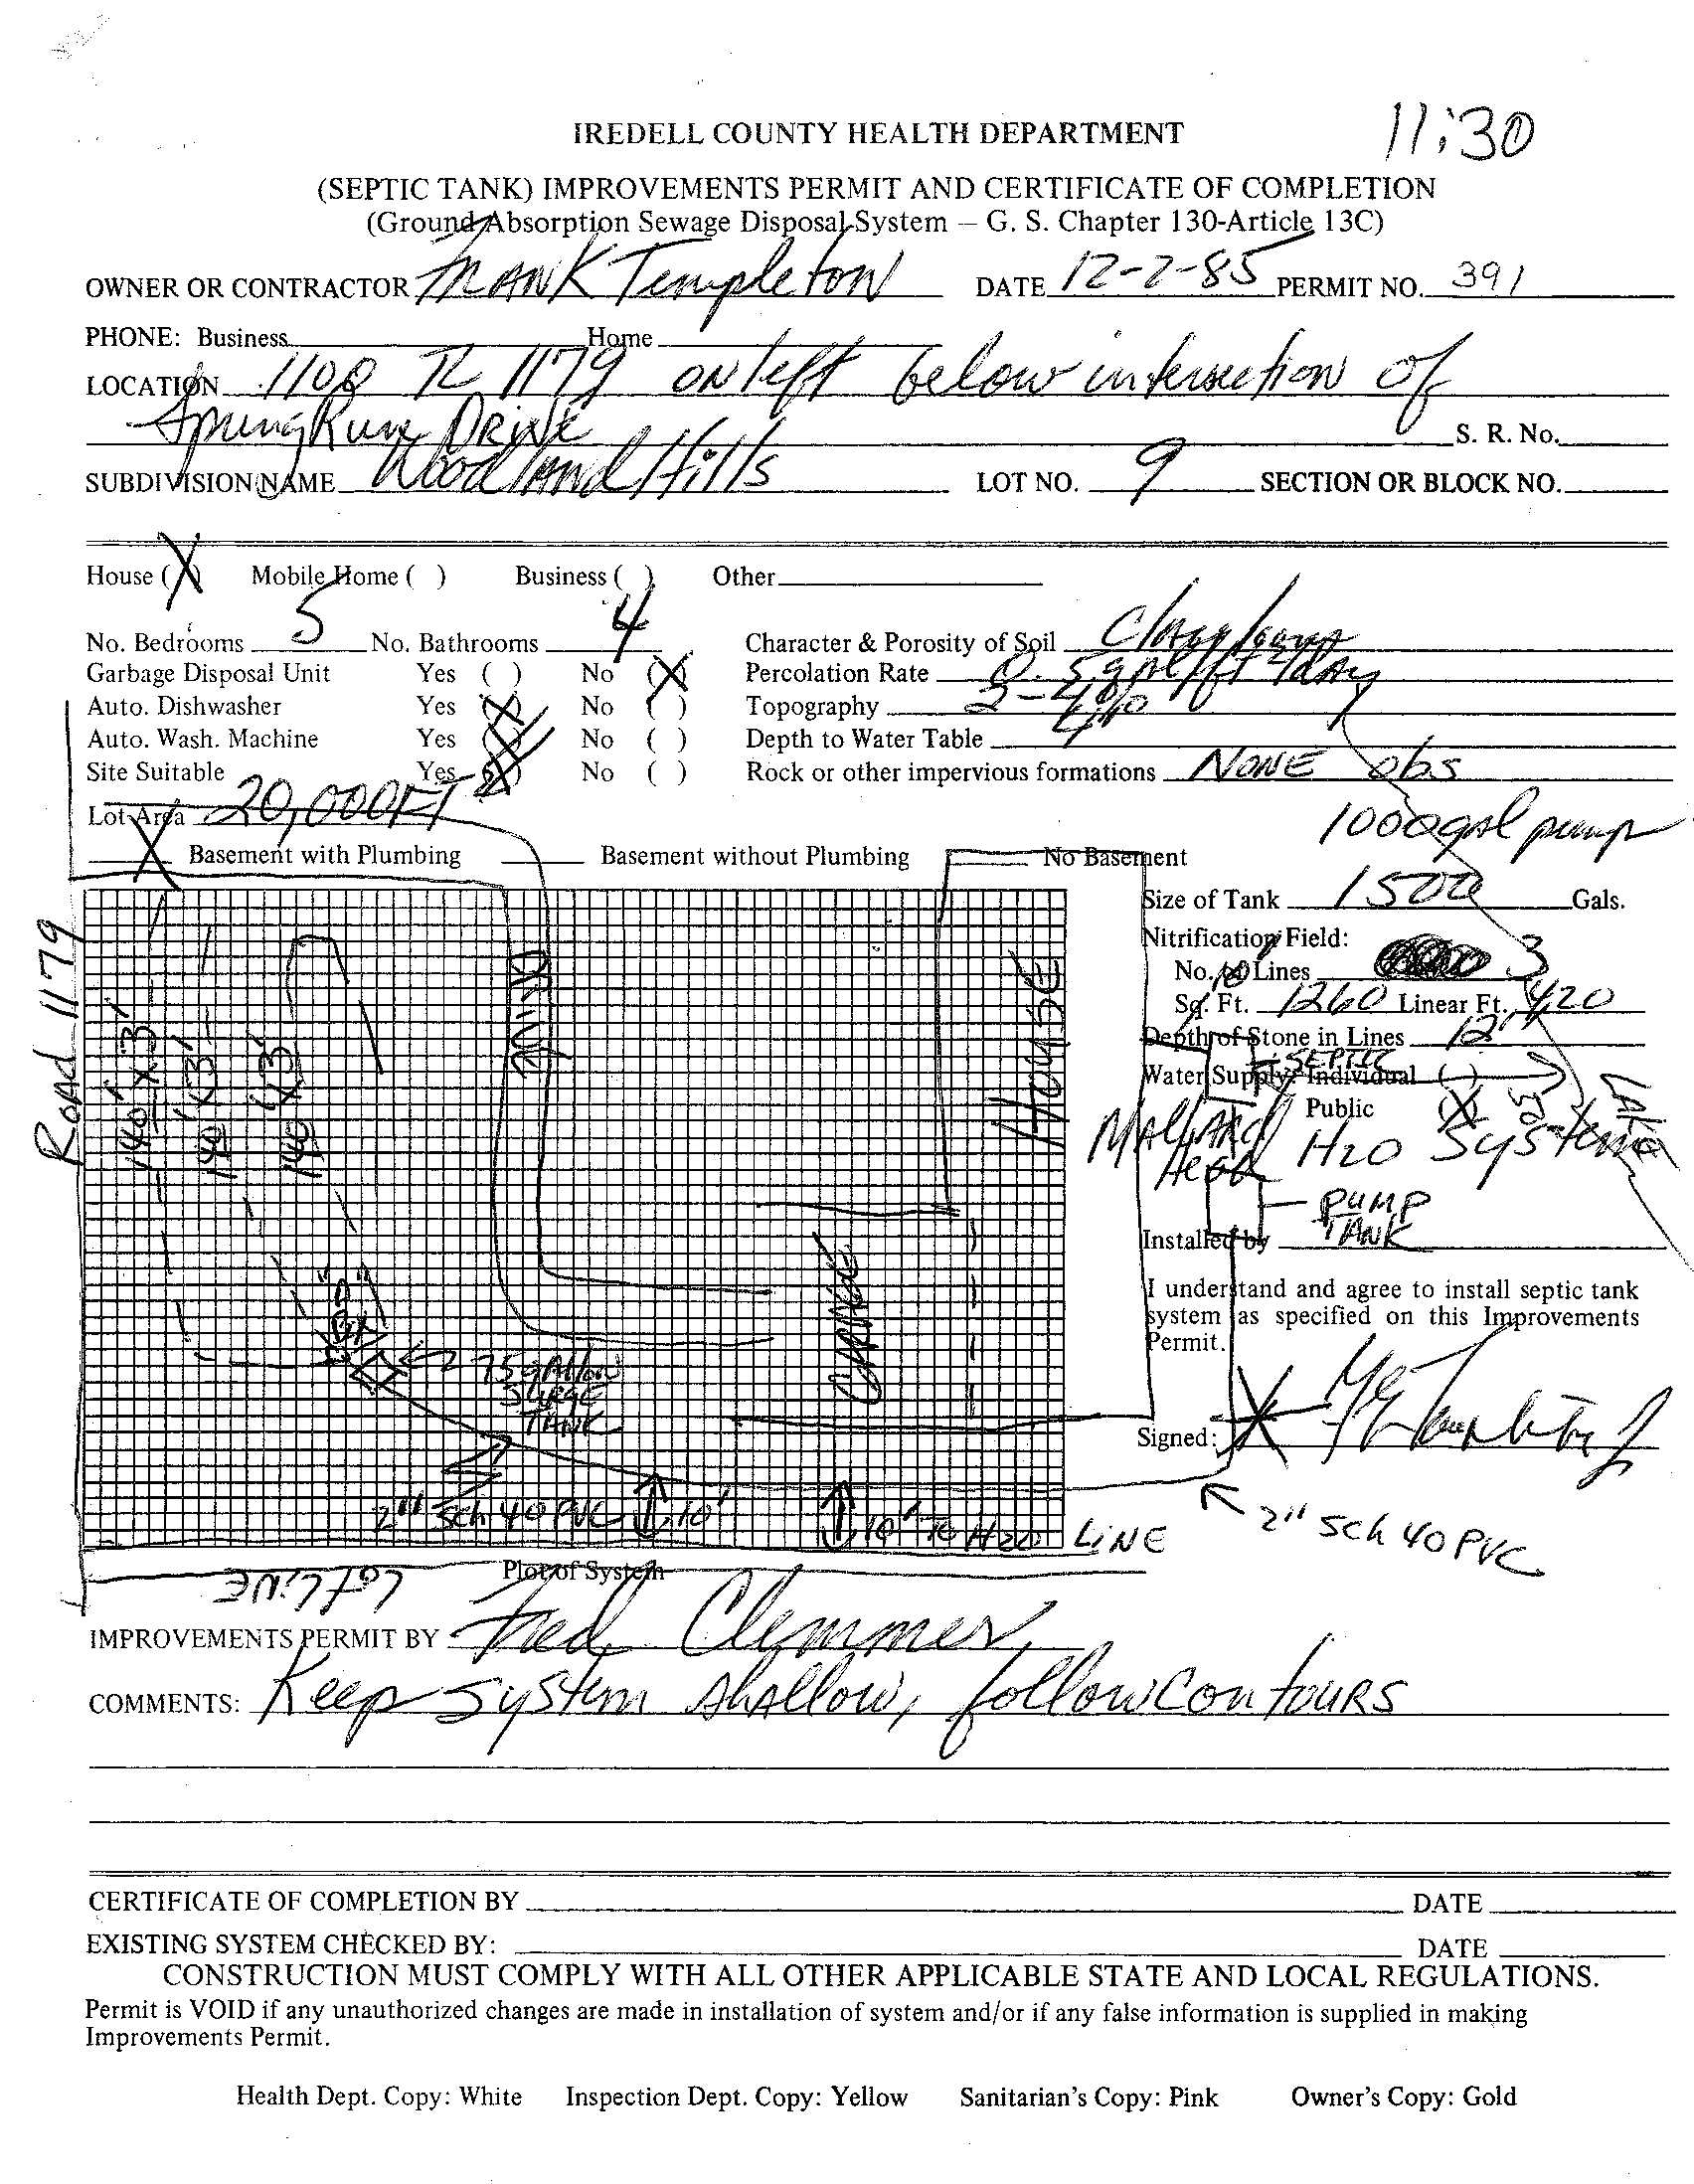 11:30
IREDELL COUNTY HEALTH DEPARTMENT
(SEPTIC TANK) IMPROVEMENTS PERMIT AND CERTIFICATE OF COMPLETION
(Ground Absorption Sewage Disposal System — G. S. Chapter 130-Article 13C)
OWNER OR CONTRACTOR FRANK Templeton DATE 12-2-85 PERMIT NO. 391
PHONE: Business Home
LOCATION 1108 TL 1179 ON left below intersection of
Spring Run DRIVE S. R. No.
SUBDIVISION NAME Woodland Hills LOT NO. 9 SECTION OR BLOCK NO.
House (X) Mobile Home ( ) Business ( ) Other
No. Bedrooms 5 No. Bathrooms 4 Character & Porosity of Soil Clay loam
Garbage Disposal Unit Yes ( ) No (X) Percolation Rate 0.5 gpd/ft²/day
Auto. Dishwasher Yes (X) No ( ) Topography 2-4%
Auto. Wash. Machine Yes (X) No ( ) Depth to Water Table
Site Suitable Yes (X) No ( ) Rock or other impervious formations NONE obs
Lot Area 20,000FT
1000 gal pump
X Basement with Plumbing Basement without Plumbing No Basement
Size of Tank 1500 Gals.
Nitrification Field:
No. of Lines 3
Sq. Ft. 1260 Linear Ft. 420
Depth of Stone in Lines 12"
Water Supply: Individual ( )
Public (X)
MALLARD Head H2O Systems
SEPTIC
50'
LAKE
PUMP TANK
Installed by
I understand and agree to install septic tank
system as specified on this Improvements
Permit.
Signed: X
ROAD 1179
140' x 3'
140' x 3'
140' x 3'
DRIVE
HOUSE
GARAGE
"D" BX
75 gallon
SURGE
TANK
2" Sch 40 PVC 10' 10' TO H2O LINE
2" SCh 40 PVC
LOT LINE
Plot of System
IMPROVEMENTS PERMIT BY Fred Clemmer
COMMENTS: Keep system shallow, follow contours
CERTIFICATE OF COMPLETION BY DATE
EXISTING SYSTEM CHECKED BY: DATE
CONSTRUCTION MUST COMPLY WITH ALL OTHER APPLICABLE STATE AND LOCAL REGULATIONS.
Permit is VOID if any unauthorized changes are made in installation of system and/or if any false information is supplied in making
Improvements Permit.
Health Dept. Copy: White Inspection Dept. Copy: Yellow Sanitarian's Copy: Pink Owner's Copy: Gold